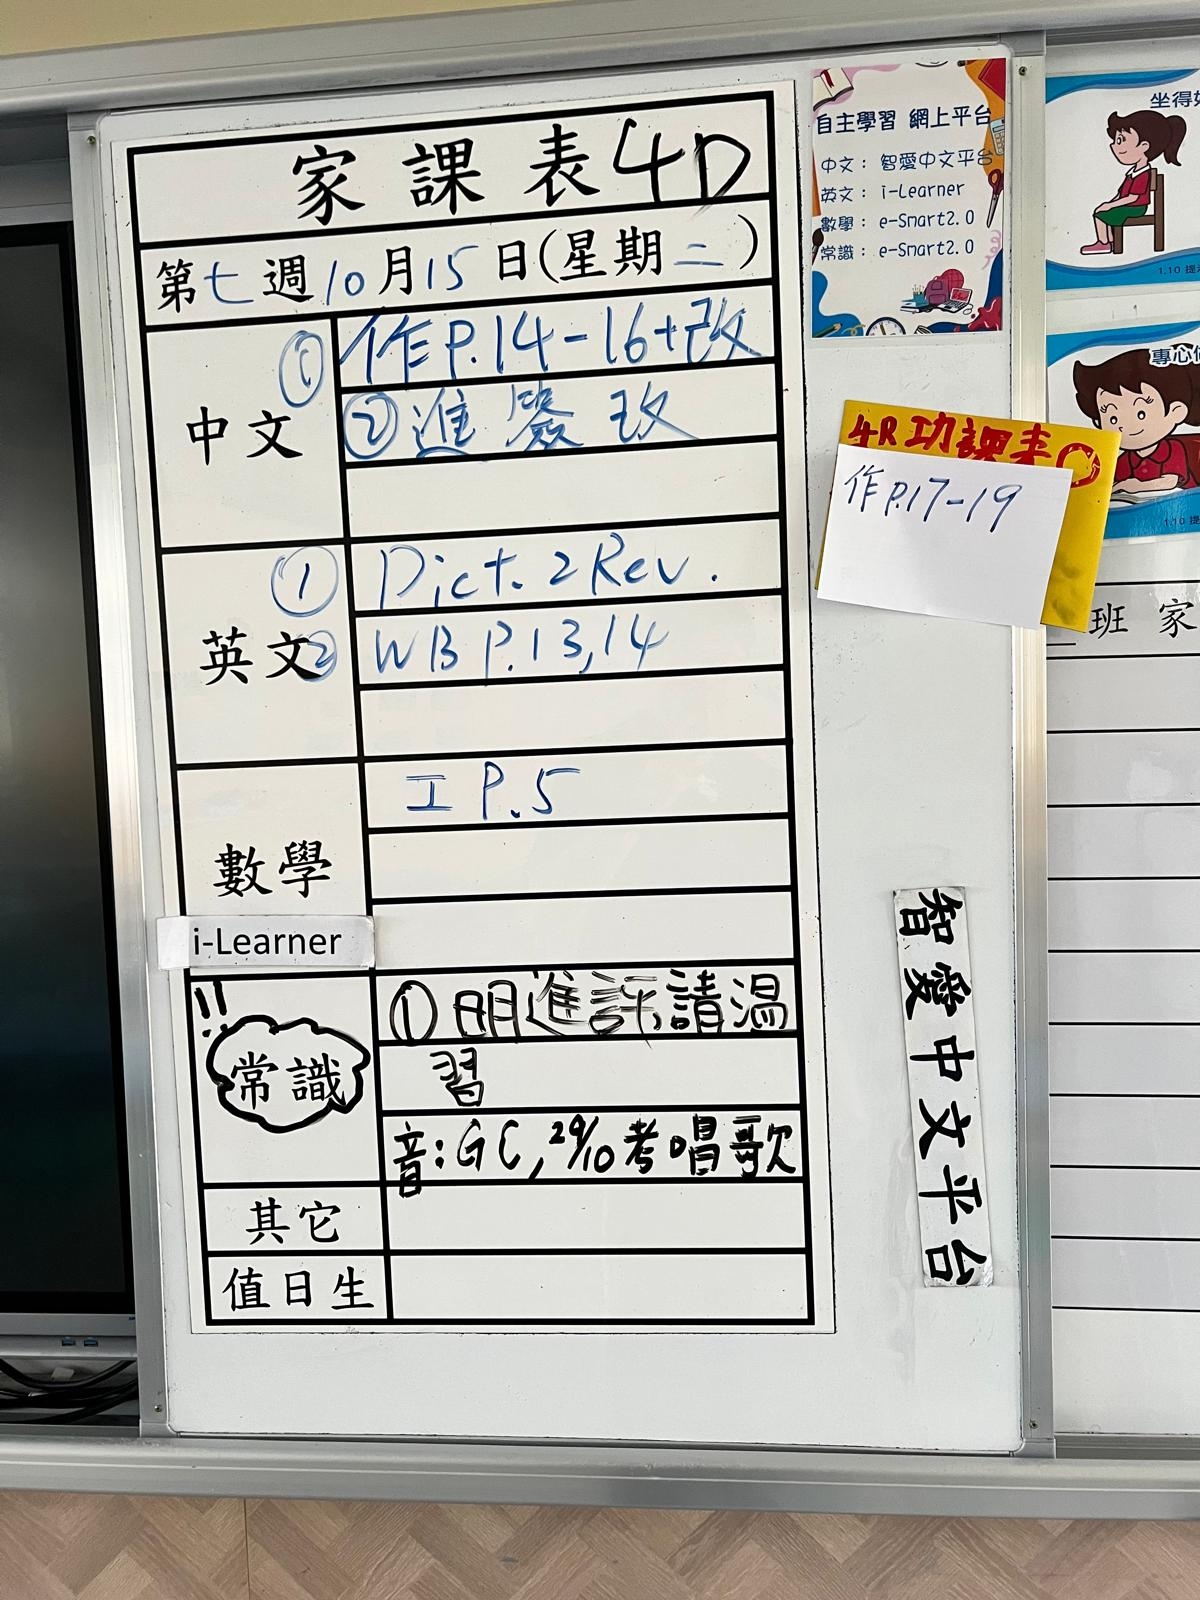 家課表4D
第七週10月15日(星期二)
中文
① 作P.14-16+改
② 進簽改
英文
① Dict. 2 Rev.
② WB P.13,14
數學
工 P.5
i-Learner
!!
常識
① 明進評,請溫
習
音:GC, 29/10考唱歌
其它
值日生
自主學習 網上平台
中文: 智愛中文平台
英文: i-Learner
數學: e-Smart2.0
常識: e-Smart2.0
4R功課表
作P.17-19
智愛中文平台
坐得好
1.10 提
專心
1.10 提
班 家